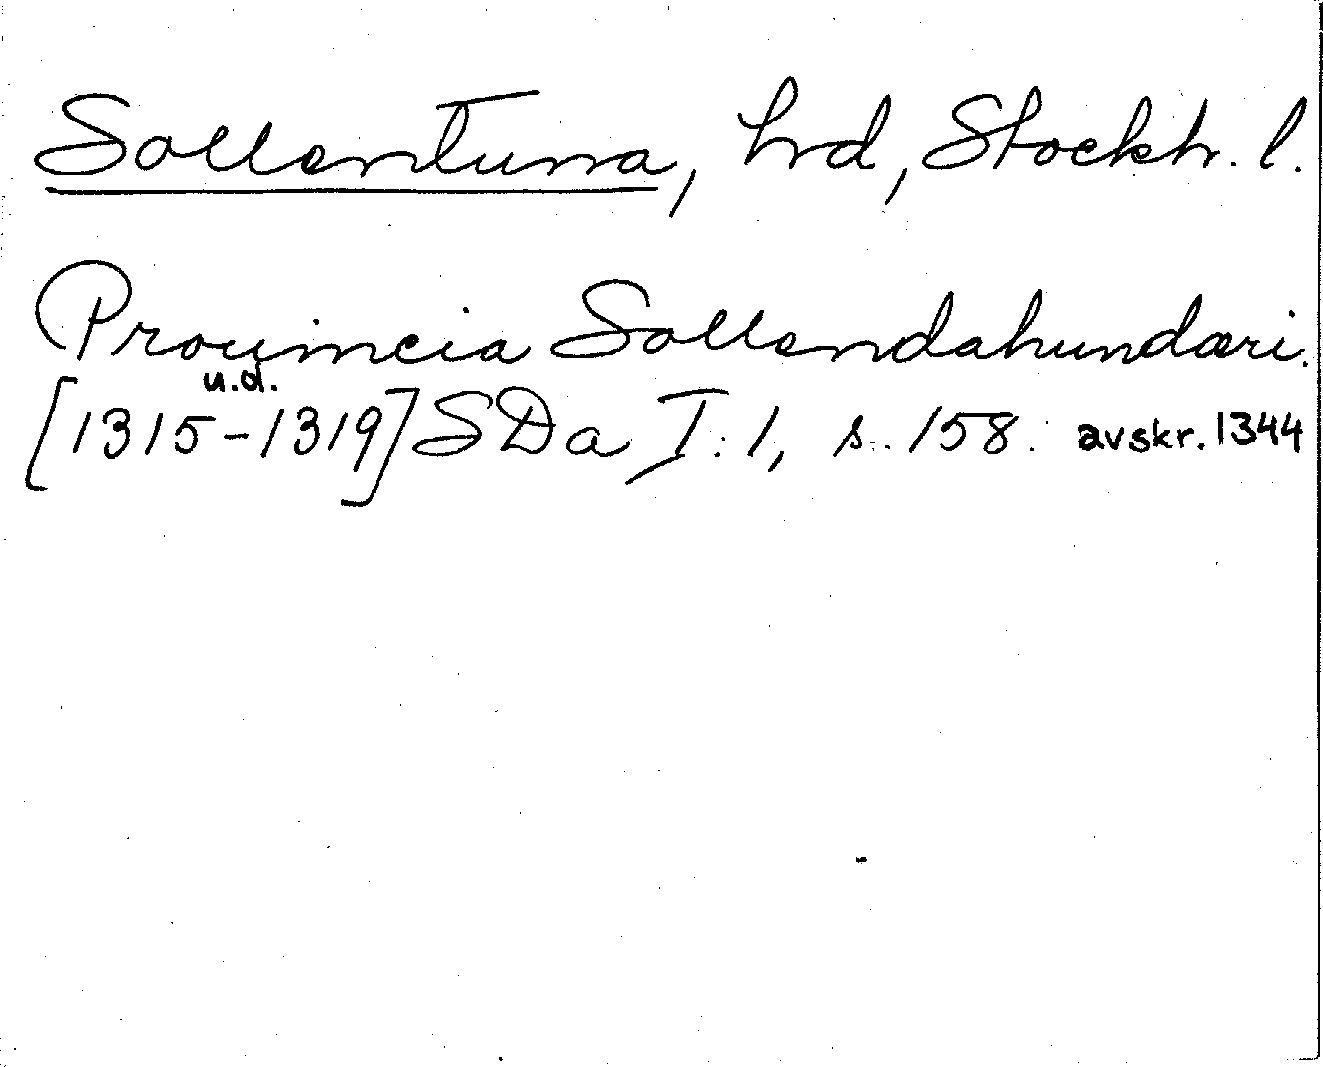 Sollentuna, hd, Stockh. l.
Prouincia Sollendahundæri.
u.d.
[1315-1319] SDa I:1, s. 158. avskr. 1344